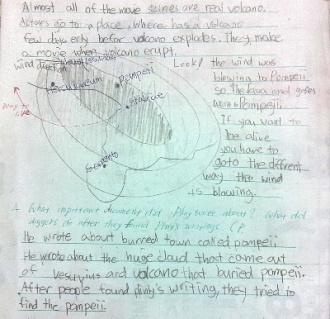 Almost all of the movie scines are real volcano.
Actors go to a place, where has a volcano
few days only befor volcano explodes. They make
a movie when volcano erupt.
Wind direction
Look! the wind was
blowing to Pompeii
so the lava and gases
were Pompeii.
If you want to
be alive
you have to
go to the different
way the wind
is blowing.
Herculaneum
Pompeii
Stabiae
way to
What important document did Pliny write about? What did
diggers do after they found Pliny's writings
He wrote about burned town called pompeii
He wrote about the huge cloud that came out
of vesuvius and volcano that buried pompeii.
After people found pliny's writing, they tried to
find the pompeii.